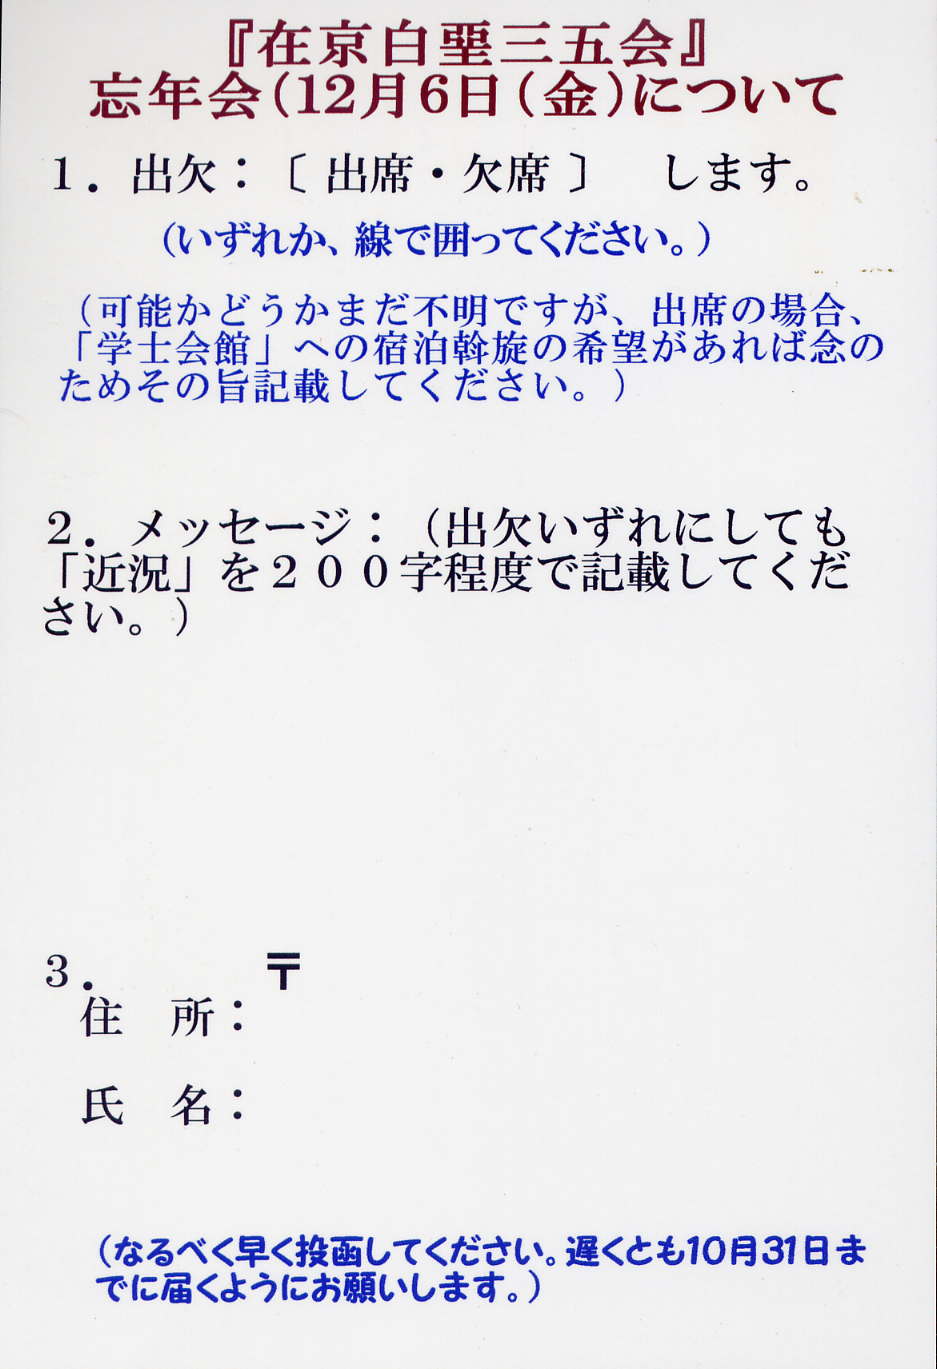 『在京白堊三五会』
忘年会(12月6日(金)について
１．出欠：〔 出席・欠席 〕　します。
(いずれか、線で囲ってください。)
（可能かどうかまだ不明ですが、出席の場合、
「学士会館」への宿泊斡旋の希望があれば念の
ためその旨記載してください。）
２．メッセージ：（出欠いずれにしても
「近況」を２００字程度で記載してくだ
さい。）
３．　　　〒
住　所：
氏　名：
(なるべく早く投函してください。遅くとも10月31日ま
でに届くようにお願いします。)